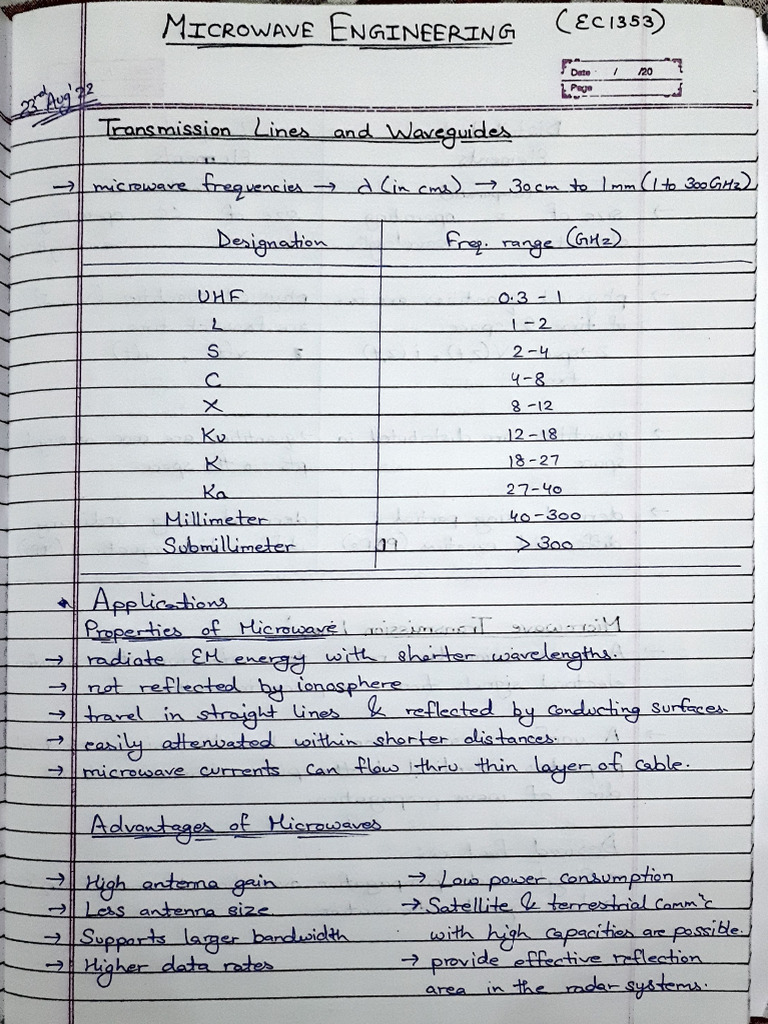 MICROWAVE ENGINEERING (EC1353)
Date / /20
Page
23rd Aug'22
Transmission Lines and Waveguides
→ microwave frequencies → λ (in cms) → 30cm to 1mm (1 to 300GHz)
Designation Freq. range (GHz)
UHF 0.3 - 1
L 1 - 2
S 2 - 4
C 4 - 8
X 8 - 12
Ku 12 - 18
K 18 - 27
Ka 27 - 40
Millimeter 40 - 300
Submillimeter > 300
Applications
Properties of Microwave
→ radiate EM energy with shorter wavelengths.
→ not reflected by ionosphere
→ travel in straight lines & reflected by conducting surfaces.
→ easily attenuated within shorter distances.
→ microwave currents can flow thru thin layer of cable.
Advantages of Microwaves
→ High antenna gain
→ Less antenna size
→ Supports larger bandwidth
→ Higher data rates
→ Low power consumption
→ Satellite & terrestrial comm'c
with high capacities are possible.
→ provide effective reflection
area in the radar systems.